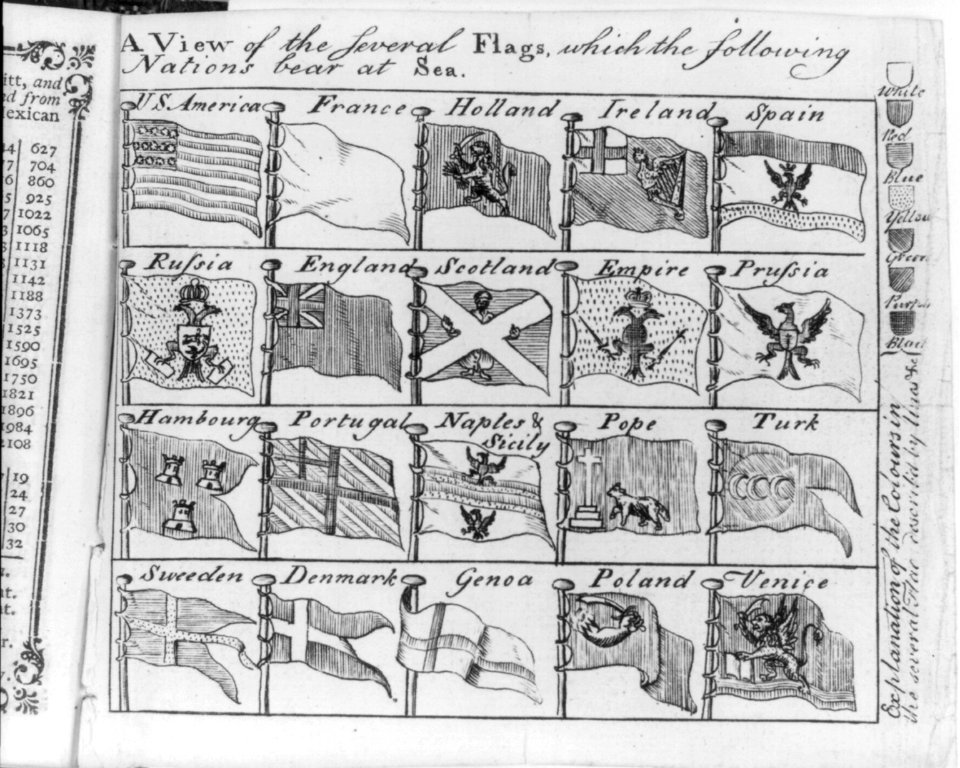 A View of the ſeveral Flags, which the following
Nations bear at Sea.
U.S. America France Holland Ireland Spain
Ruſsia England Scotland Empire Pruſsia
Hambourg Portugal Naples &
Sicily Pope Turk
Sweeden Denmark Genoa Poland Venice
White
Red
Blue
Yellow
Green
Purpu
Blac
Explanation of the Colours in
the several Flags describ'd by lines &c
itt, and
d from
Mexican
14 627
7 704
6 860
5 925
7 1022
3 1065
1118
1131
1142
1188
1373
1525
1590
1695
1750
1821
1896
1984
2108
19
24
27
30
32